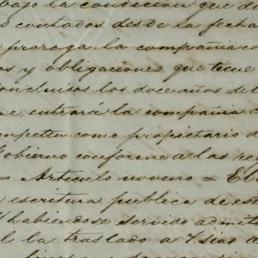 bajo la condicion que de
s contados desde la fecha
proroga la compañia c
os y obligaciones que tiene
concluidos los doce años de
se, entrará la compañia
como propietario d
Gobierno conforme a las re
= Articulo noveno = El
escritura publica de es
habiendose servido admit
l la traslado a V. sias d